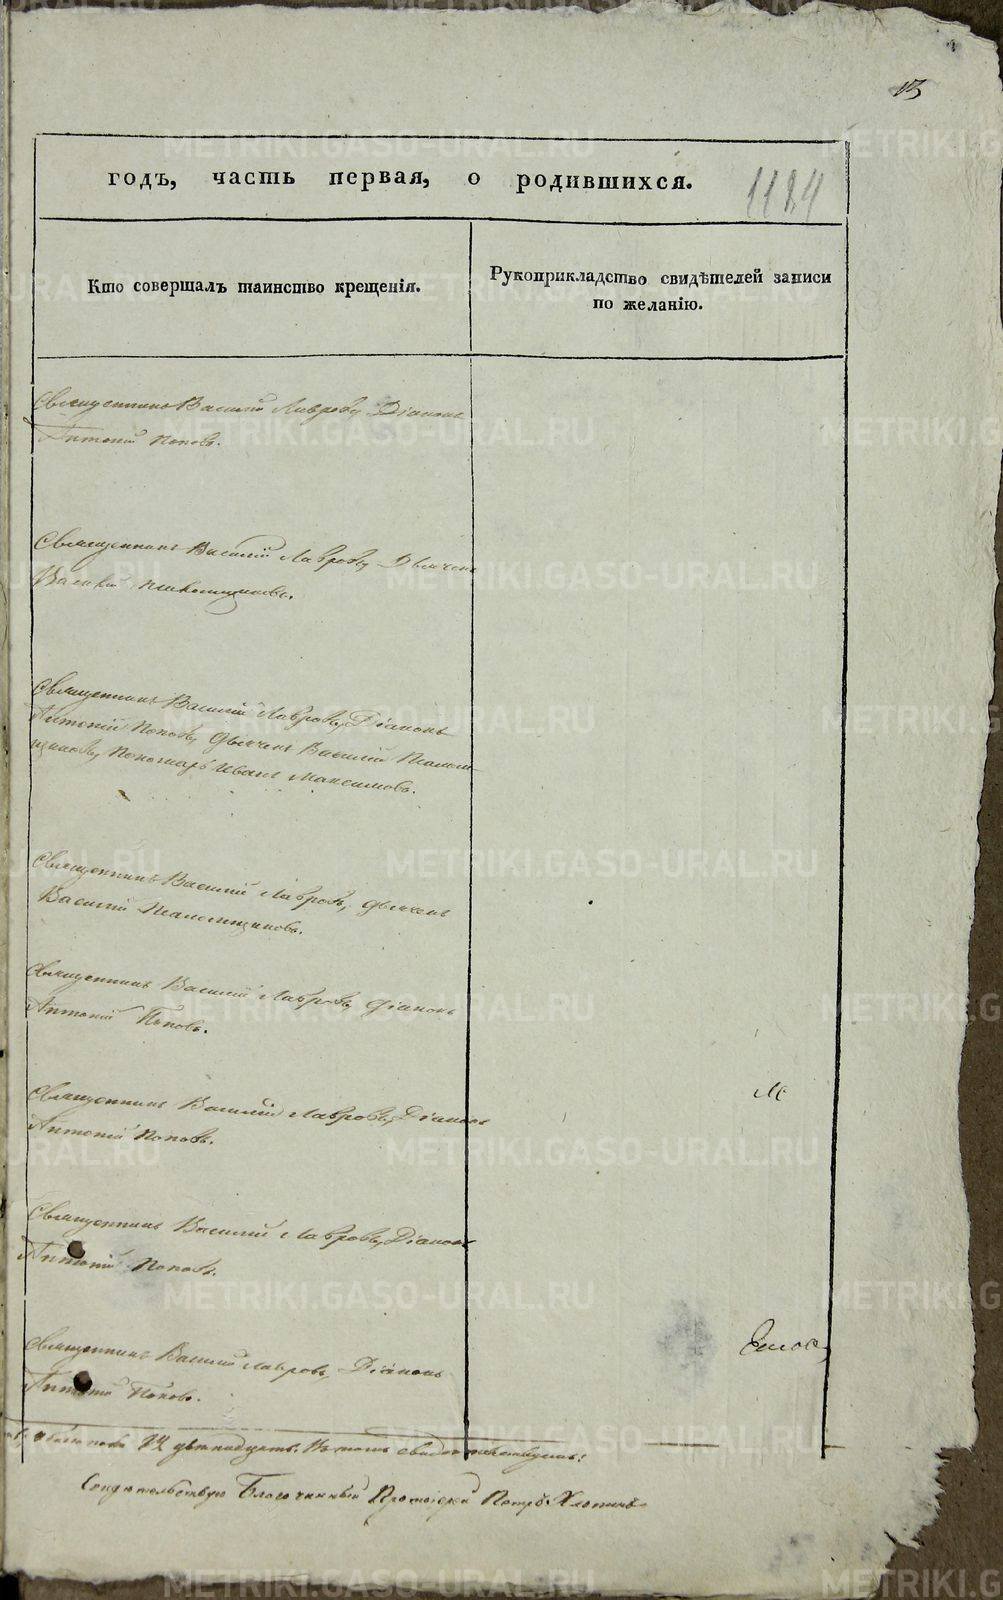 13
годъ, часть первая, о родившихся.
1124
Кто совершалъ таинство крещенія.
Рукоприкладство свидѣтелей записи
по желанію.
Священникъ Василій Лавровъ, Діаконъ
Антоній Поповъ.
Священникъ Василій Лавровъ, Дьячекъ
Василій
Священникъ Василій Лавровъ, Діаконъ
Антоній Поповъ, Дьячекъ Василій
Пономарь Иванъ Максимовъ.
Священникъ Василій Лавровъ, Дьячекъ
Василій
Священникъ Василій Лавровъ, Діаконъ
Антоній Поповъ.
Священникъ Василій Лавровъ, Діаконъ
Антоній Поповъ.
Священникъ Василій Лавровъ, Діаконъ
Антоній Поповъ.
Священникъ Василій Лавровъ, Діаконъ
Антоній Поповъ.
Свидѣтельствую Благочинный Протоіерей Петръ
METRIKI.GASO-URAL.RU